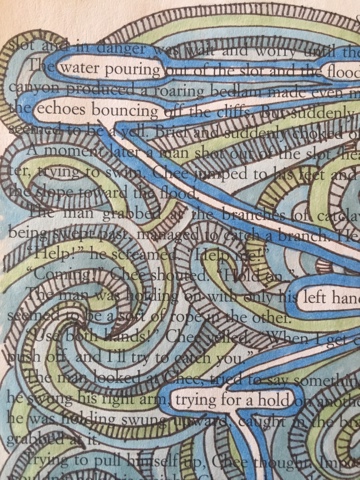 slot and in danger was wait and worry until the
The water pouring out of the slot and the floo
canyon produced a roaring bedlam made even m
the echoes bouncing off the cliffs. But suddenly
seemed to be a yell. Brief and suddenly choked o
A moment later a man shot out of the slot, he
er, trying to swim. Chee jumped to his feet and
the slope toward the flood.
The man grabbed at the branches of
being swept past, managed to catch a branch. He
"Help!" he screamed. "Help me!"
"Coming!" Chee shouted. "Hold on."
The man was holding on with only his left hand
seemed to be a sort of rope in the other.
"Use both hands!" Chee yelled. "When I get c
push off, and I'll try to catch you."
The man looked at Chee, tried to say somethin
he swung his right arm trying for a hold on anothe
he was holding swung upward, caught in the
grabbed at it.
Trying to pull himself up, Chee thought.